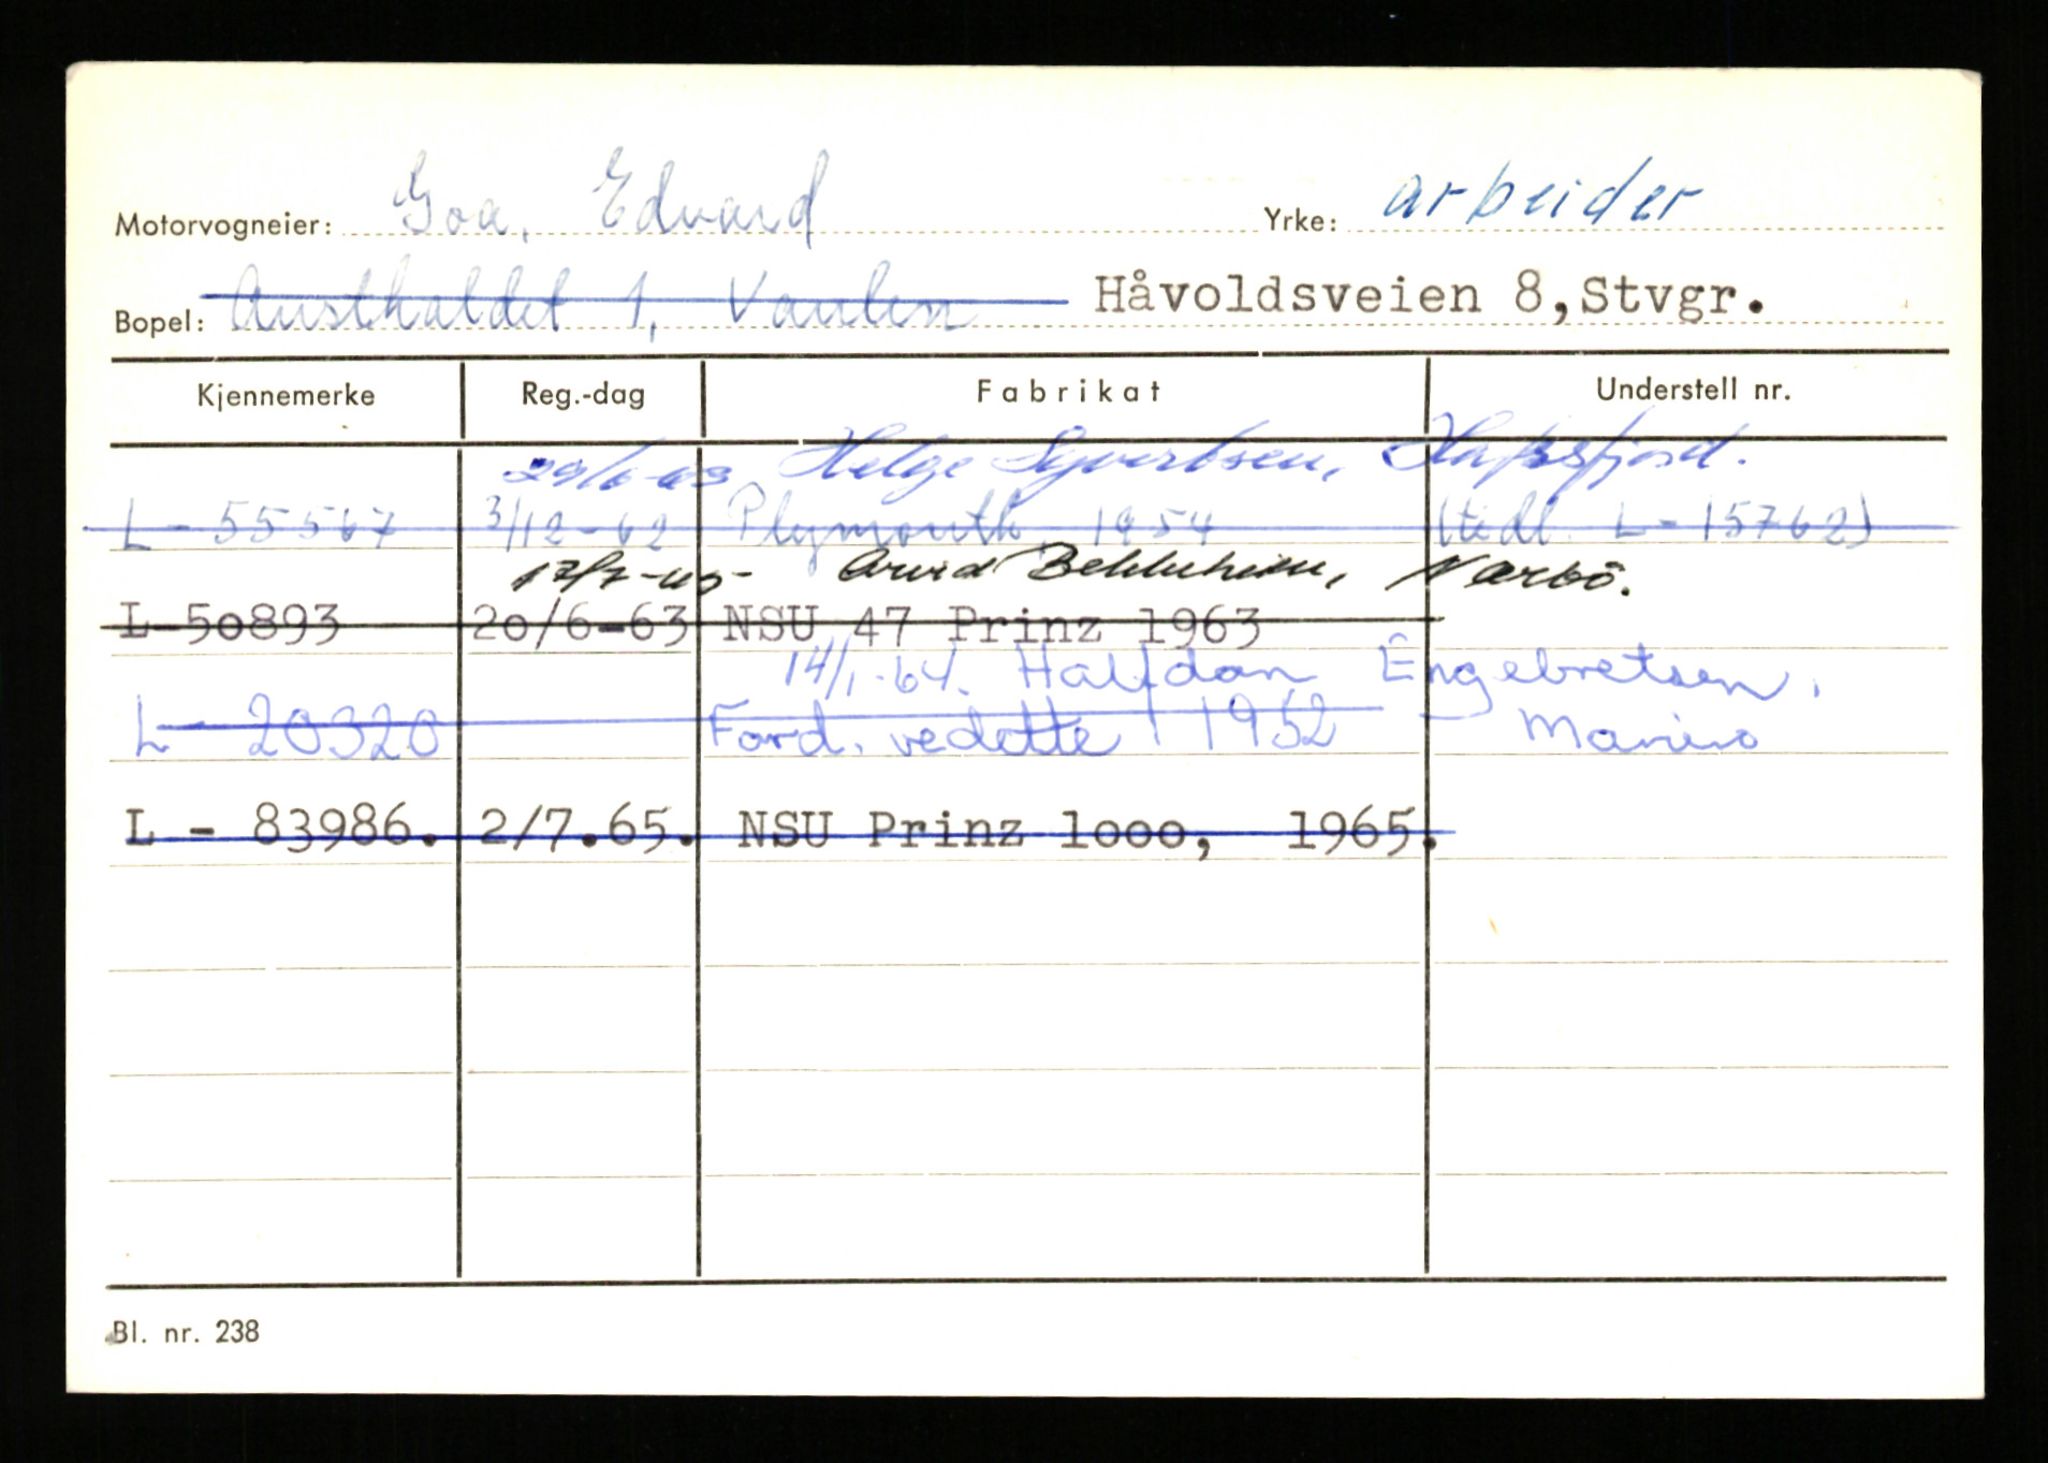 Motorvogneier: Goa, Edvard Yrke: arbeider
Bopel: Austhaldet 1, Vaulen Håvoldsveien 8,Stvgr.
Kjennemerke Reg.-dag Fabrikat Understell nr.
Helge Syvertsen, Hafrsfjord.
L - 55567 3/12-62 Plymouth 1954 (tidl. L - 15762)
Arvid Nærbö.
L-50893 20/6-63 NSU 47 Prinz 1963
14/1-64. Halfdan Engebretsen,
L - 20320 Ford. vedette 1952
L - 83986. 2/7.65. NSU Prinz 1000, 1965.
Bl. nr. 238